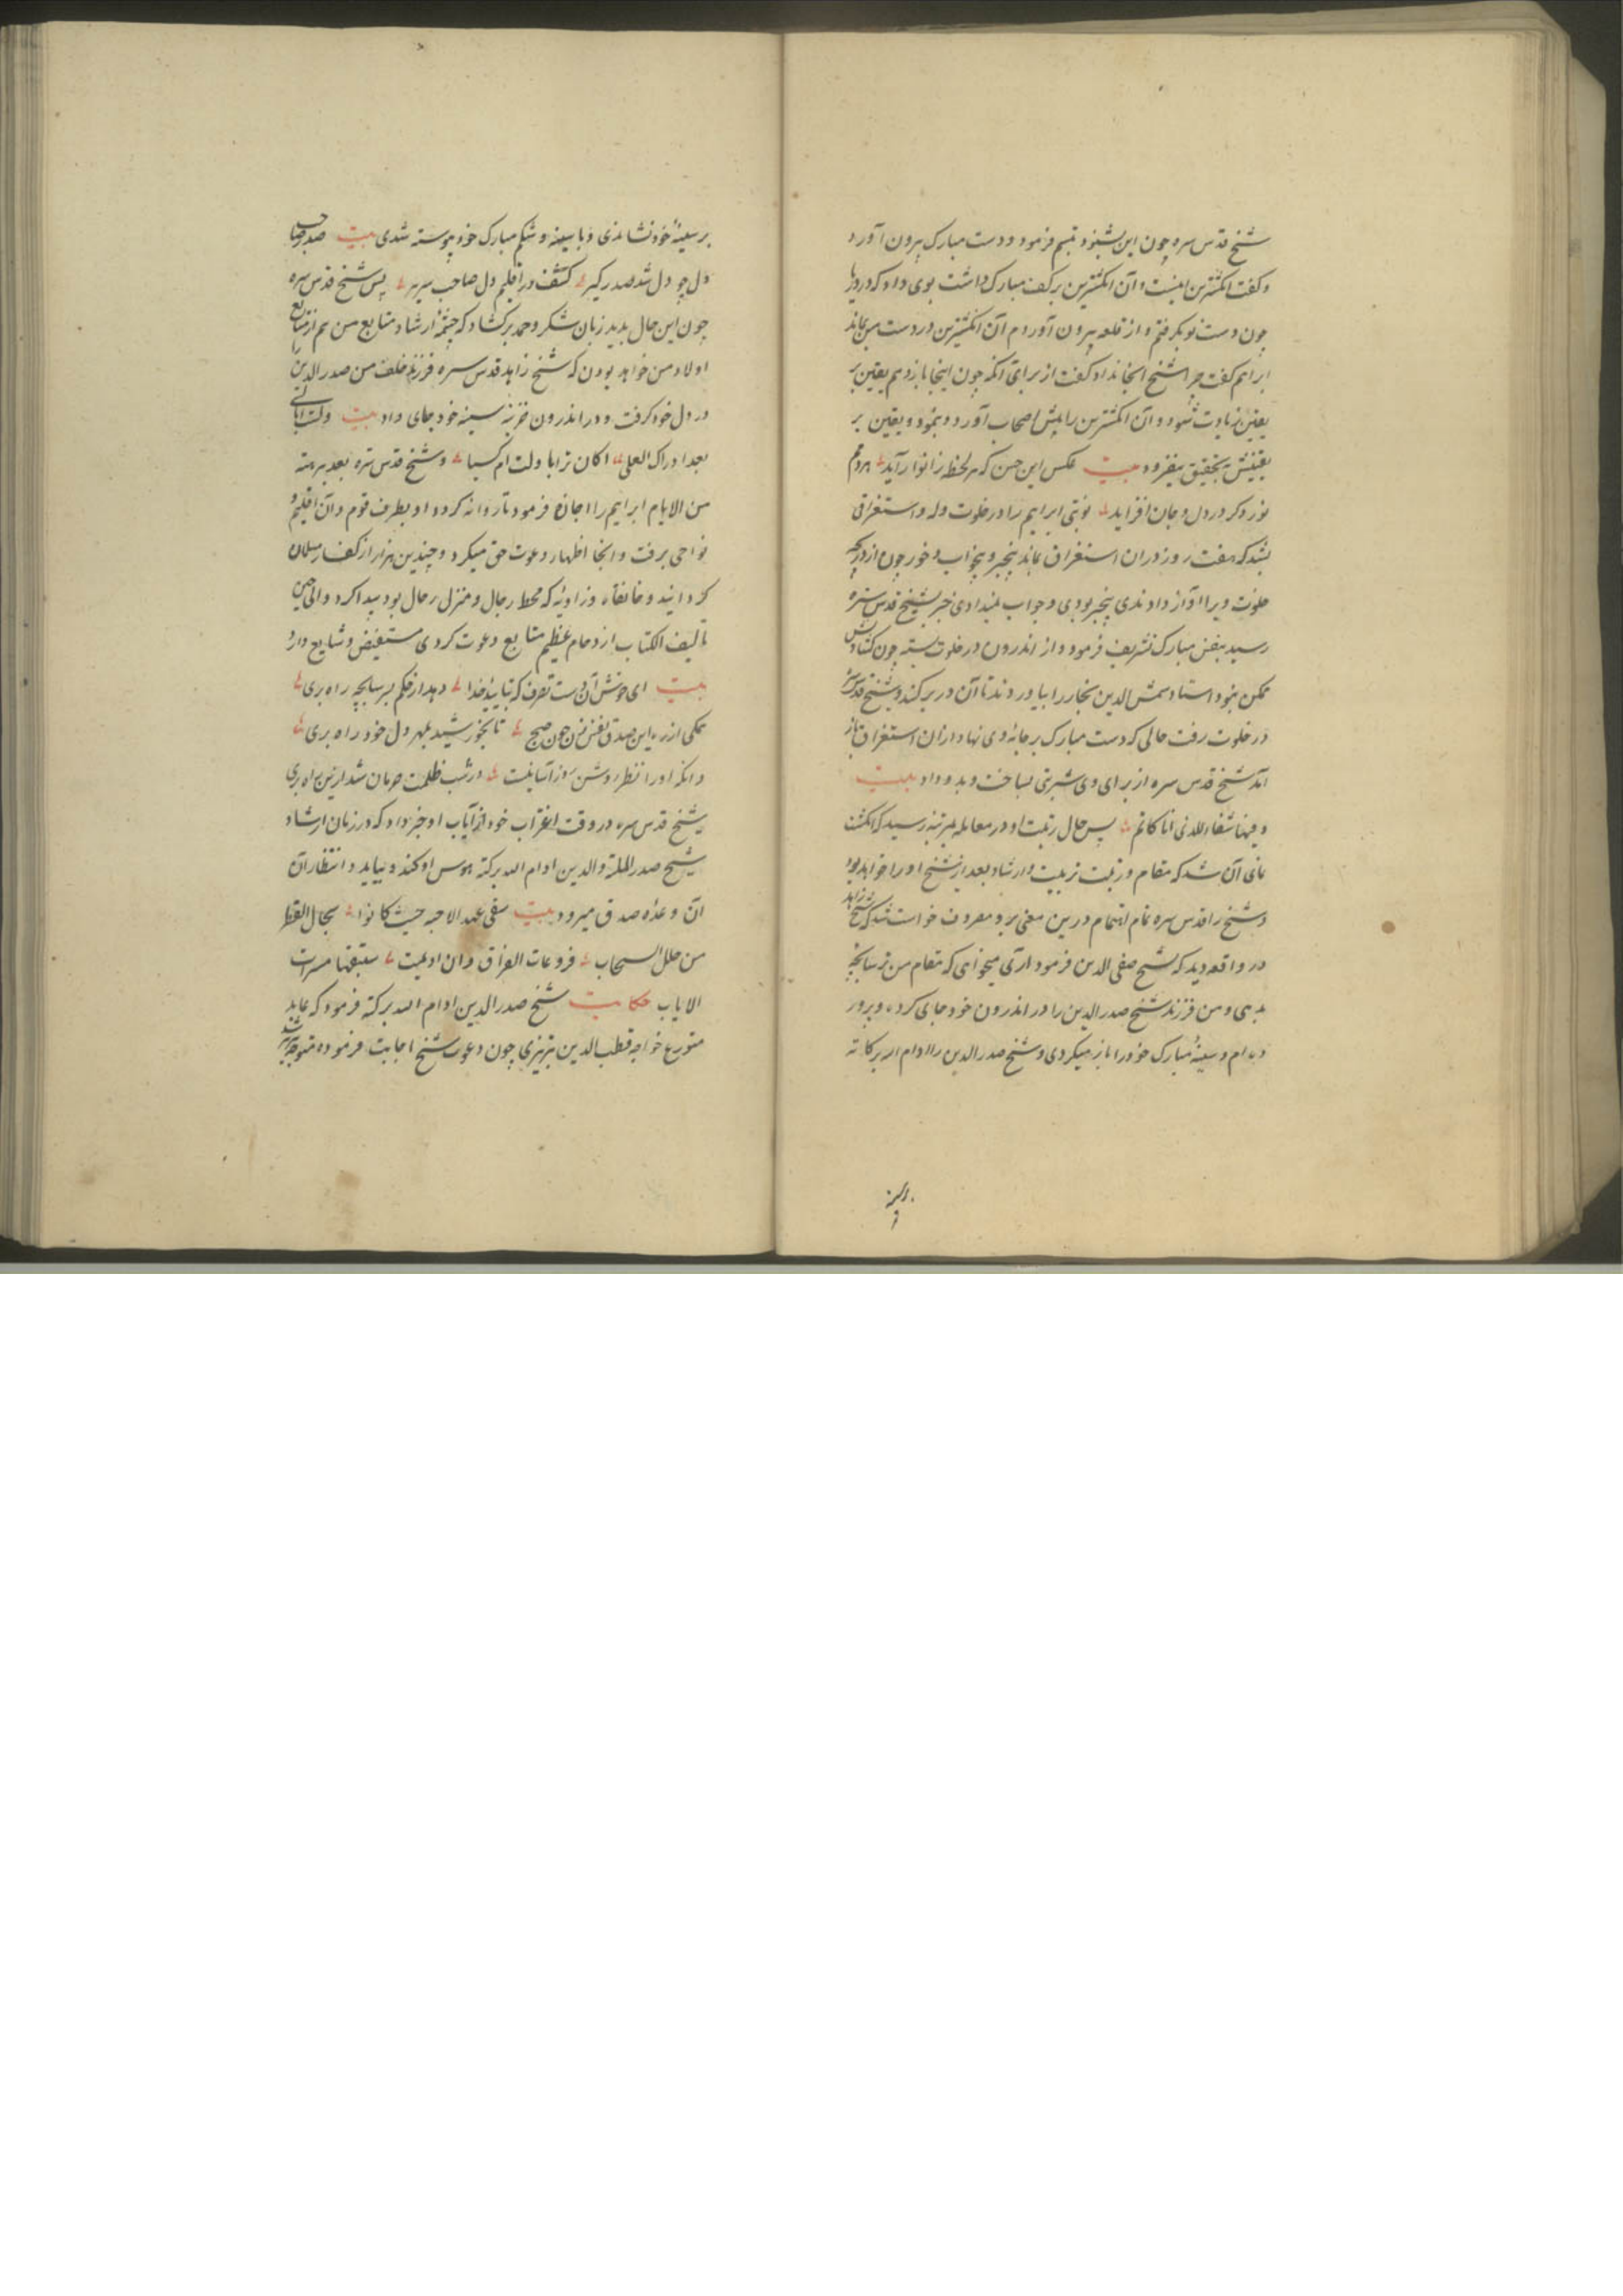 شیخ قدس سره چون این بشنید تبسم فرمود و دست مبارک بیرون آورد
و گفت انگشترین اینست و آن انگشترین بر کف مبارک داشت بوی داد که در دریا
چون دست تو بگرفتم و از قلعه بیرون آوردم آن انگشترین در دست من بماند
ابراهیم گفت چرا شیخ آنجا نداد گفت از برای آنکه چون اینجا باز دهم یقین بر
یقین زیادت شود و آن انگشترین را پیش اصحاب آورد و بنمود و یقین بر
یقینش بتحقیق بیفزود بیت عکس این حسن که هر لحظه ز انوار آید هر دم
نور دگر در دل و جان افزاید نوبتی ابراهیم را در خلوت وله و استغراقی
بشد که هفت روز در آن استغراق بماند بیخبر و بیخواب و خور چون از دریچه
خلوت ویرا آواز دادندی بیخبر بودی و جواب ندادی خبر بشیخ قدس سره
رسید بنفس مبارک تشریف فرمود و از اندرون در خلوت بسته چون گشادنش
ممکن نبود استاد شمس الدین نجار را بیاوردند تا آن در برکند و شیخ قدس سره
در خلوت رفت حالی که دست مبارک بر وی نهاد از آن استغراق باز
آمد شیخ قدس سره از برای وی شربتی بساخت و بدو داد بیت
و فیها شفاء للذی انا کاتم پس حال رتبت او در معامله بمرتبه رسید که انگشت
نمای آن شد که مقام و رتبت تربیت و ارشاد بعد از شیخ او را خواهد بود
و شیخ را قدس سره تمام اهتمام درین معنی بر و معروف خواست شد که شیخ زاهد
در واقعه دید که شیخ صفی الدین فرمود آری میخواهی که مقام من
بدهی و من فرزند شیخ صدر الدین را در اندرون خود جای کرده و پرورده
دیدم و سینه مبارک خود را باز میکردی و شیخ صدر الدین را ادام الله برکاته
بر سینه
بر سینهٔ خود نشاندی و با سینه و شکم مبارک خود پیوسته شدی بیت صدر صاحب
دل چو دل شد صدر گیر کشف در اقلیم دل صاحب سریر پس شیخ قدس سره
چون این حال بدید زبان شکر و حمد برگشاد که چشمهٔ ارشاد متابع من هم از منابع
اولاد من خواهد بودن که شیخ زاهد قدس سره فرزند خلف من صدر الدین را
در دل خود گرفت و در اندرون خزینه سینه خود جای داد بیت ولست ابالی
بعد ادراک العلی اکان تراثا ولت ام کسبا و شیخ قدس سره بعد برهته
من الایام ابراهیم را اجازه فرمود تا روانه کرد و او بطرف قوم و آن اقلیم و
نواحی برفت و آنجا اظهار دعوت حق میکرد و چندین هزار از کفار مسلمان
گردانید و خانقاه و زاویه که محط رحال و منزل رجال بود پیدا کرد و الی حین
تالیف الکتاب ازدحام عظیم متابع دعوت کردی مستفیض و شایع دارد
بیت ای خوش آن دست تصرف که بتایید خدا دهد از حکم بر راه بری
ممکن از ره این صدق نفس زن چون صبح تا بخورشید بمهر دل خود راه بری
وانکه او را نظر روشن روز آسا نیست در شب ظلمت حرمان شد ازین راه بری
شیخ قدس سره در وقت اغتراب خود از ایاب او خبر داد که در زمان ارشاد
شیخ صدر الملة والدین ادام الله برکته هوس او کند و بیاید و انتظار آن
آن وعده صدق میرود بیت سقی عهد الاحبه حیث کانوا سجال القطر
من خلل السحاب فروعات الفراق وان اوعیت ستبقیها مسرات
الایاب حکایت شیخ صدر الدین ادام الله برکته فرمود که عابد
متورع خواجه قطب الدین تبریزی چون دعوت شیخ اجابت فرموده متوجه تبریز شد